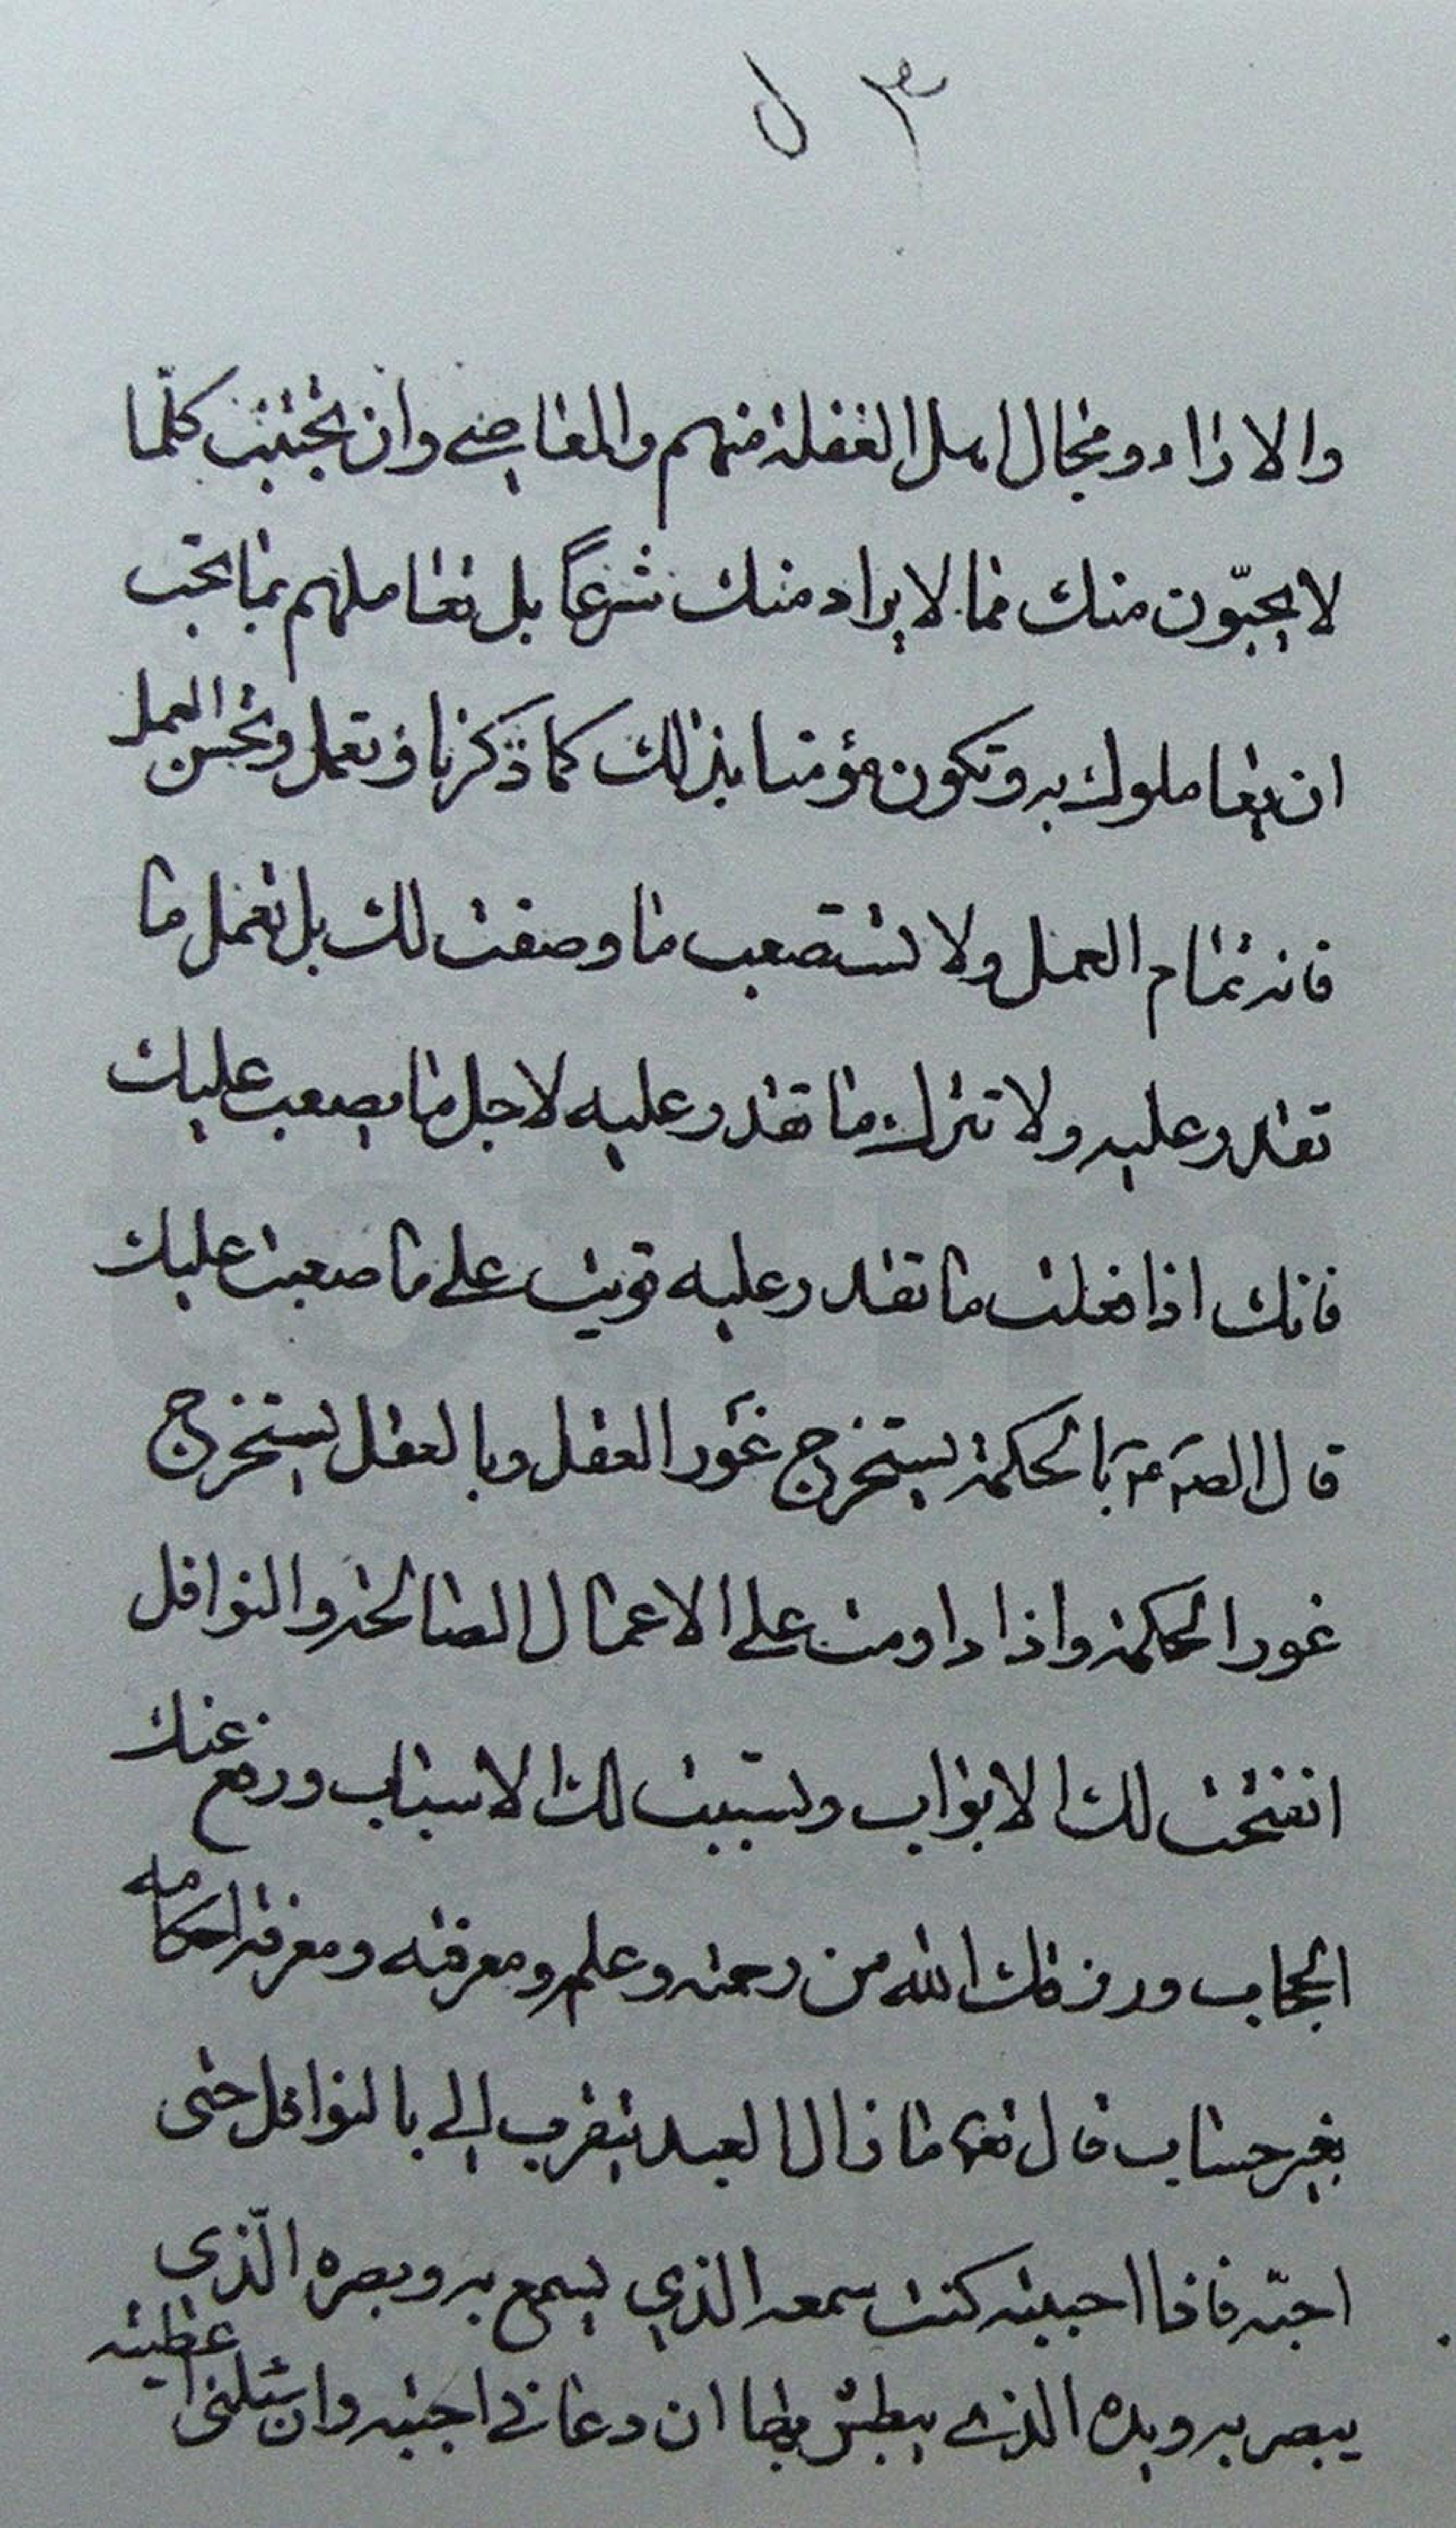 ٣ ل
والاراء ومجال اهل الغفلة منهم والمعاصي وان تجتنب كلّما
لا يحبّون منك مما لا يراد منك شرعاً بل تعاملهم بما تحب
ان يعاملوك به وتكون مؤمنا بذلك كما ذكرنا وتعمل وتحسن العمل
فانه تمام العمل ولا تستصعب ما وصفت لك بل تعمل ما
تقدر عليه ولا تترك ما تقدر عليه لاجل ما يصعب عليك
فانك اذا فعلت ما تقدر عليه قويت على ما صعبت عليك
قال الص بالحكمة يستخرج غور العقل وبالعقل يستخرج
غور الحكمة واذا داومت على الاعمال الصالحة والنوافل
انفتحت لك الابواب وتسببت لك الاسباب ورفع عنك
الحجاب ورزقك الله من رحمته وعلمه ومعرفته ومعرفة احكامه
بغير حساب قال تعا ما زال العبد يتقرب الي بالنوافل حتى
احبّه فاذا احببته كنت سمعه الذي يسمع به وبصره الّذي
يبصر به ويده الذي يبطش بها ان دعاني اجبته وان سئلني اعطيته